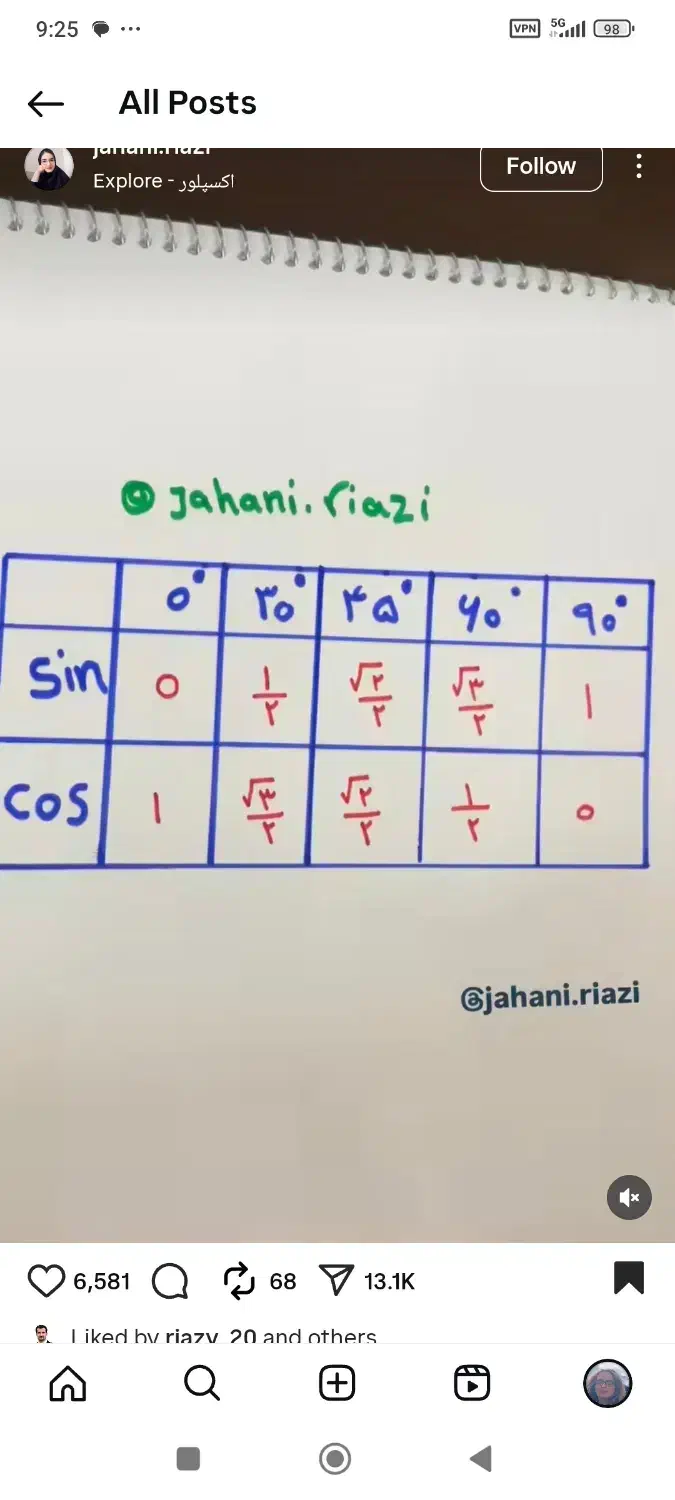 9:25 VPN 5G 98
All Posts
jahani.riazi
Explore - اکسپلور
Follow
@ jahani.riazi
۰° ۳۰° ۴۵° ۶۰° ۹۰°
Sin ۰ ۱/۲ √۲/۲ √۳/۲ ۱
cos ۱ √۳/۲ √۲/۲ ۱/۲ ۰
@jahani.riazi
6,581 68 13.1K
Liked by riazy_20 and others